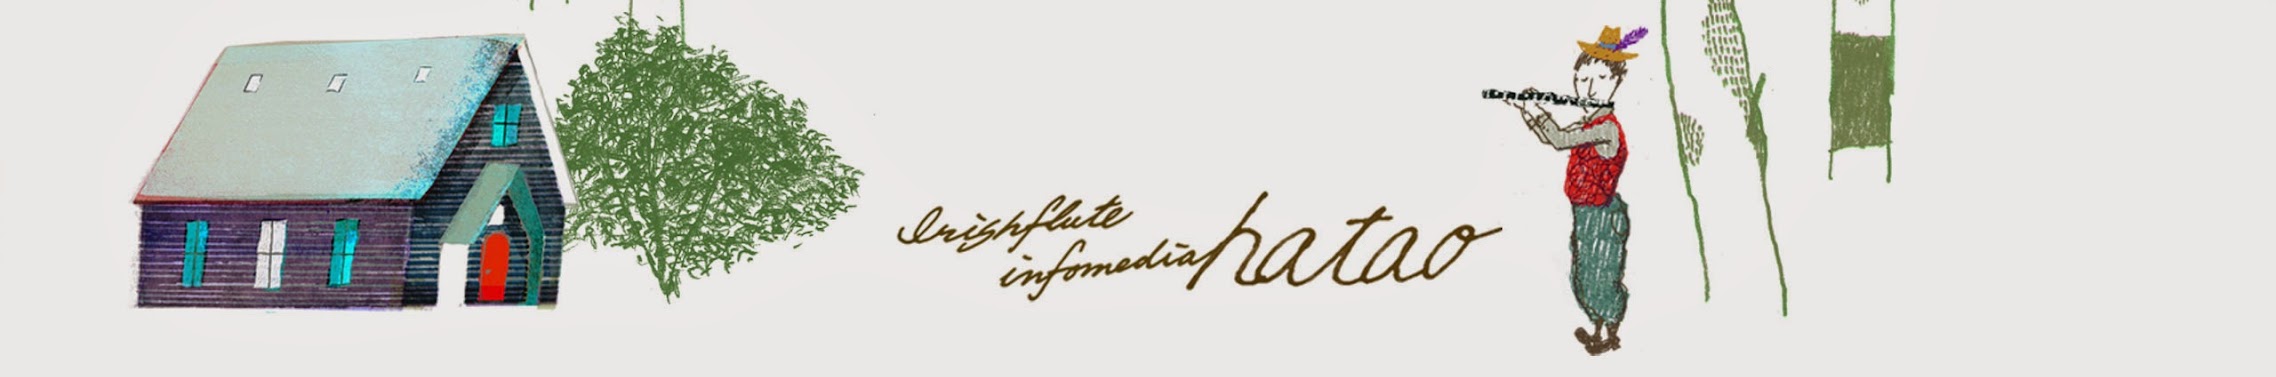 Irishflute
infomedia hatao